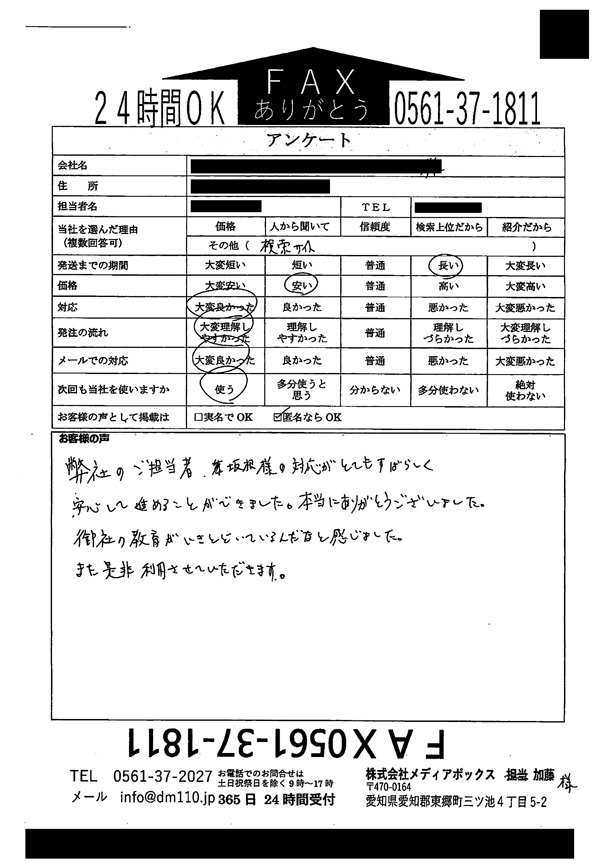 FAX
ありがとう
24時間OK 0561-37-1811
アンケート
会社名
住 所
担当者名 TEL
当社を選んだ理由（複数回答可） 価格 人から聞いて 信頼度 検索上位だから 紹介だから
その他（ 検索サイト ）
発送までの期間 大変短い 短い 普通 長い 大変長い
価格 大変安い 安い 普通 高い 大変高い
対応 大変良かった 良かった 普通 悪かった 大変悪かった
発注の流れ 大変理解しやすかった 理解しやすかった 普通 理解しづらかった 大変理解しづらかった
メールでの対応 大変良かった 良かった 普通 悪かった 大変悪かった
次回も当社を使いますか 使う 多分使うと思う 分からない 多分使わない 絶対使わない
お客様の声として掲載は □実名でOK ☑匿名ならOK
お客様の声
弊社のご担当者、様の対応がとてもすばらしく
安心して進めることができました。本当にありがとうございました。
御社の教育がいきとどいているんだなと感じました。
また是非利用させていただきます。
FAX0561-37-1811
TEL 0561-37-2027 お電話でのお問合せは土日祝祭日を除く9時～17時
メール info@dm110.jp 365日24時間受付
株式会社メディアボックス 担当 加藤 様
〒470-0164
愛知県愛知郡東郷町三ツ池4丁目5-2